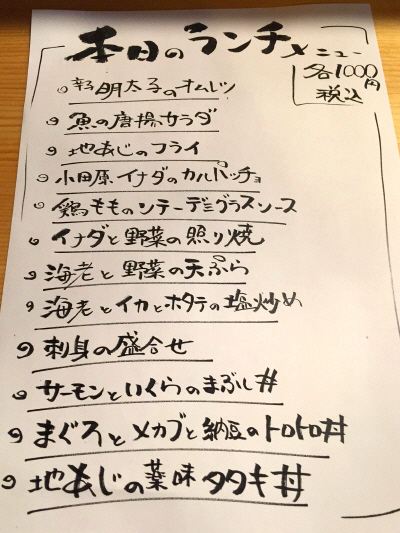 本日のランチメニュー
各1000円
税込
辛子明太子のオムレツ
魚の唐揚サラダ
地あじのフライ
小田原イナダのカルパッチョ
鶏もものソテーデミグラスソース
イナダと野菜の照り焼
海老と野菜の天ぷら
海老とイカとホタテの塩炒め
刺身の盛合せ
サーモンといくらのまぶし丼
まぐろとメカブと納豆のトロトロ丼
地あじの薬味タタキ丼